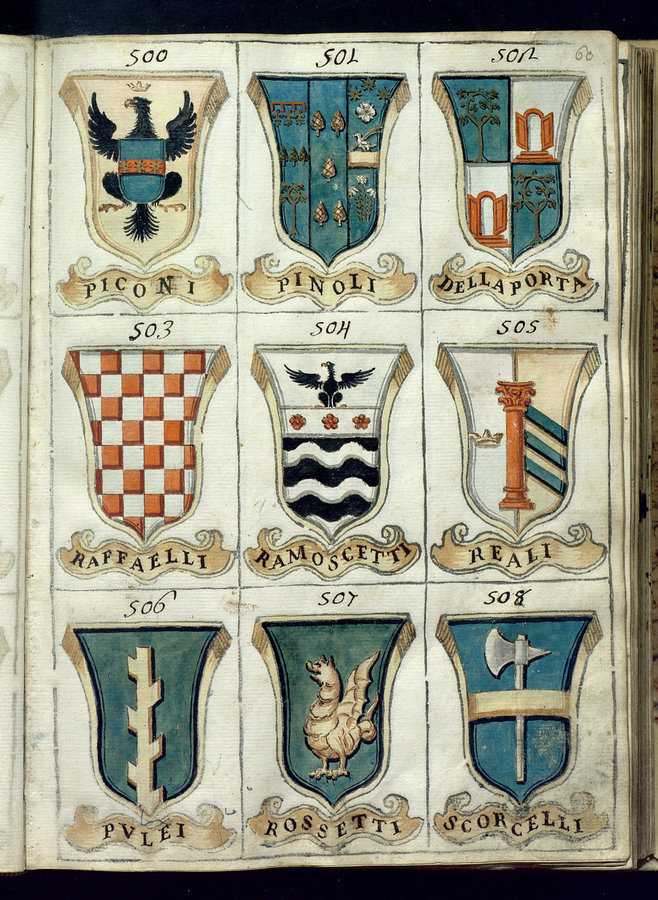 500 501 502 60
PICONI PINOLI DELLAPORTA
503 504 505
RAFFAELLI RAMOSCETTI REALI
506 507 508
PVLEI ROSSETTI SCORCELLI